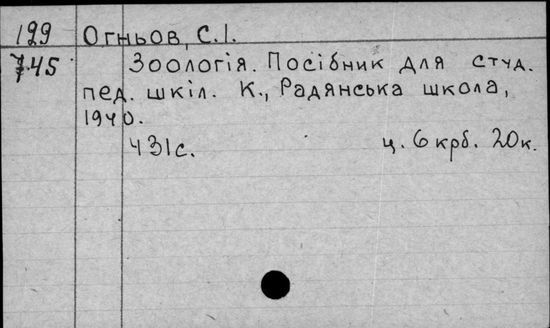 199 Огньов, С.І.
745 Зоологія. Посібник для студ.
пед. шкіл. К., Радянська школа,
1940.
431с. ц. 6 крб. 20к.